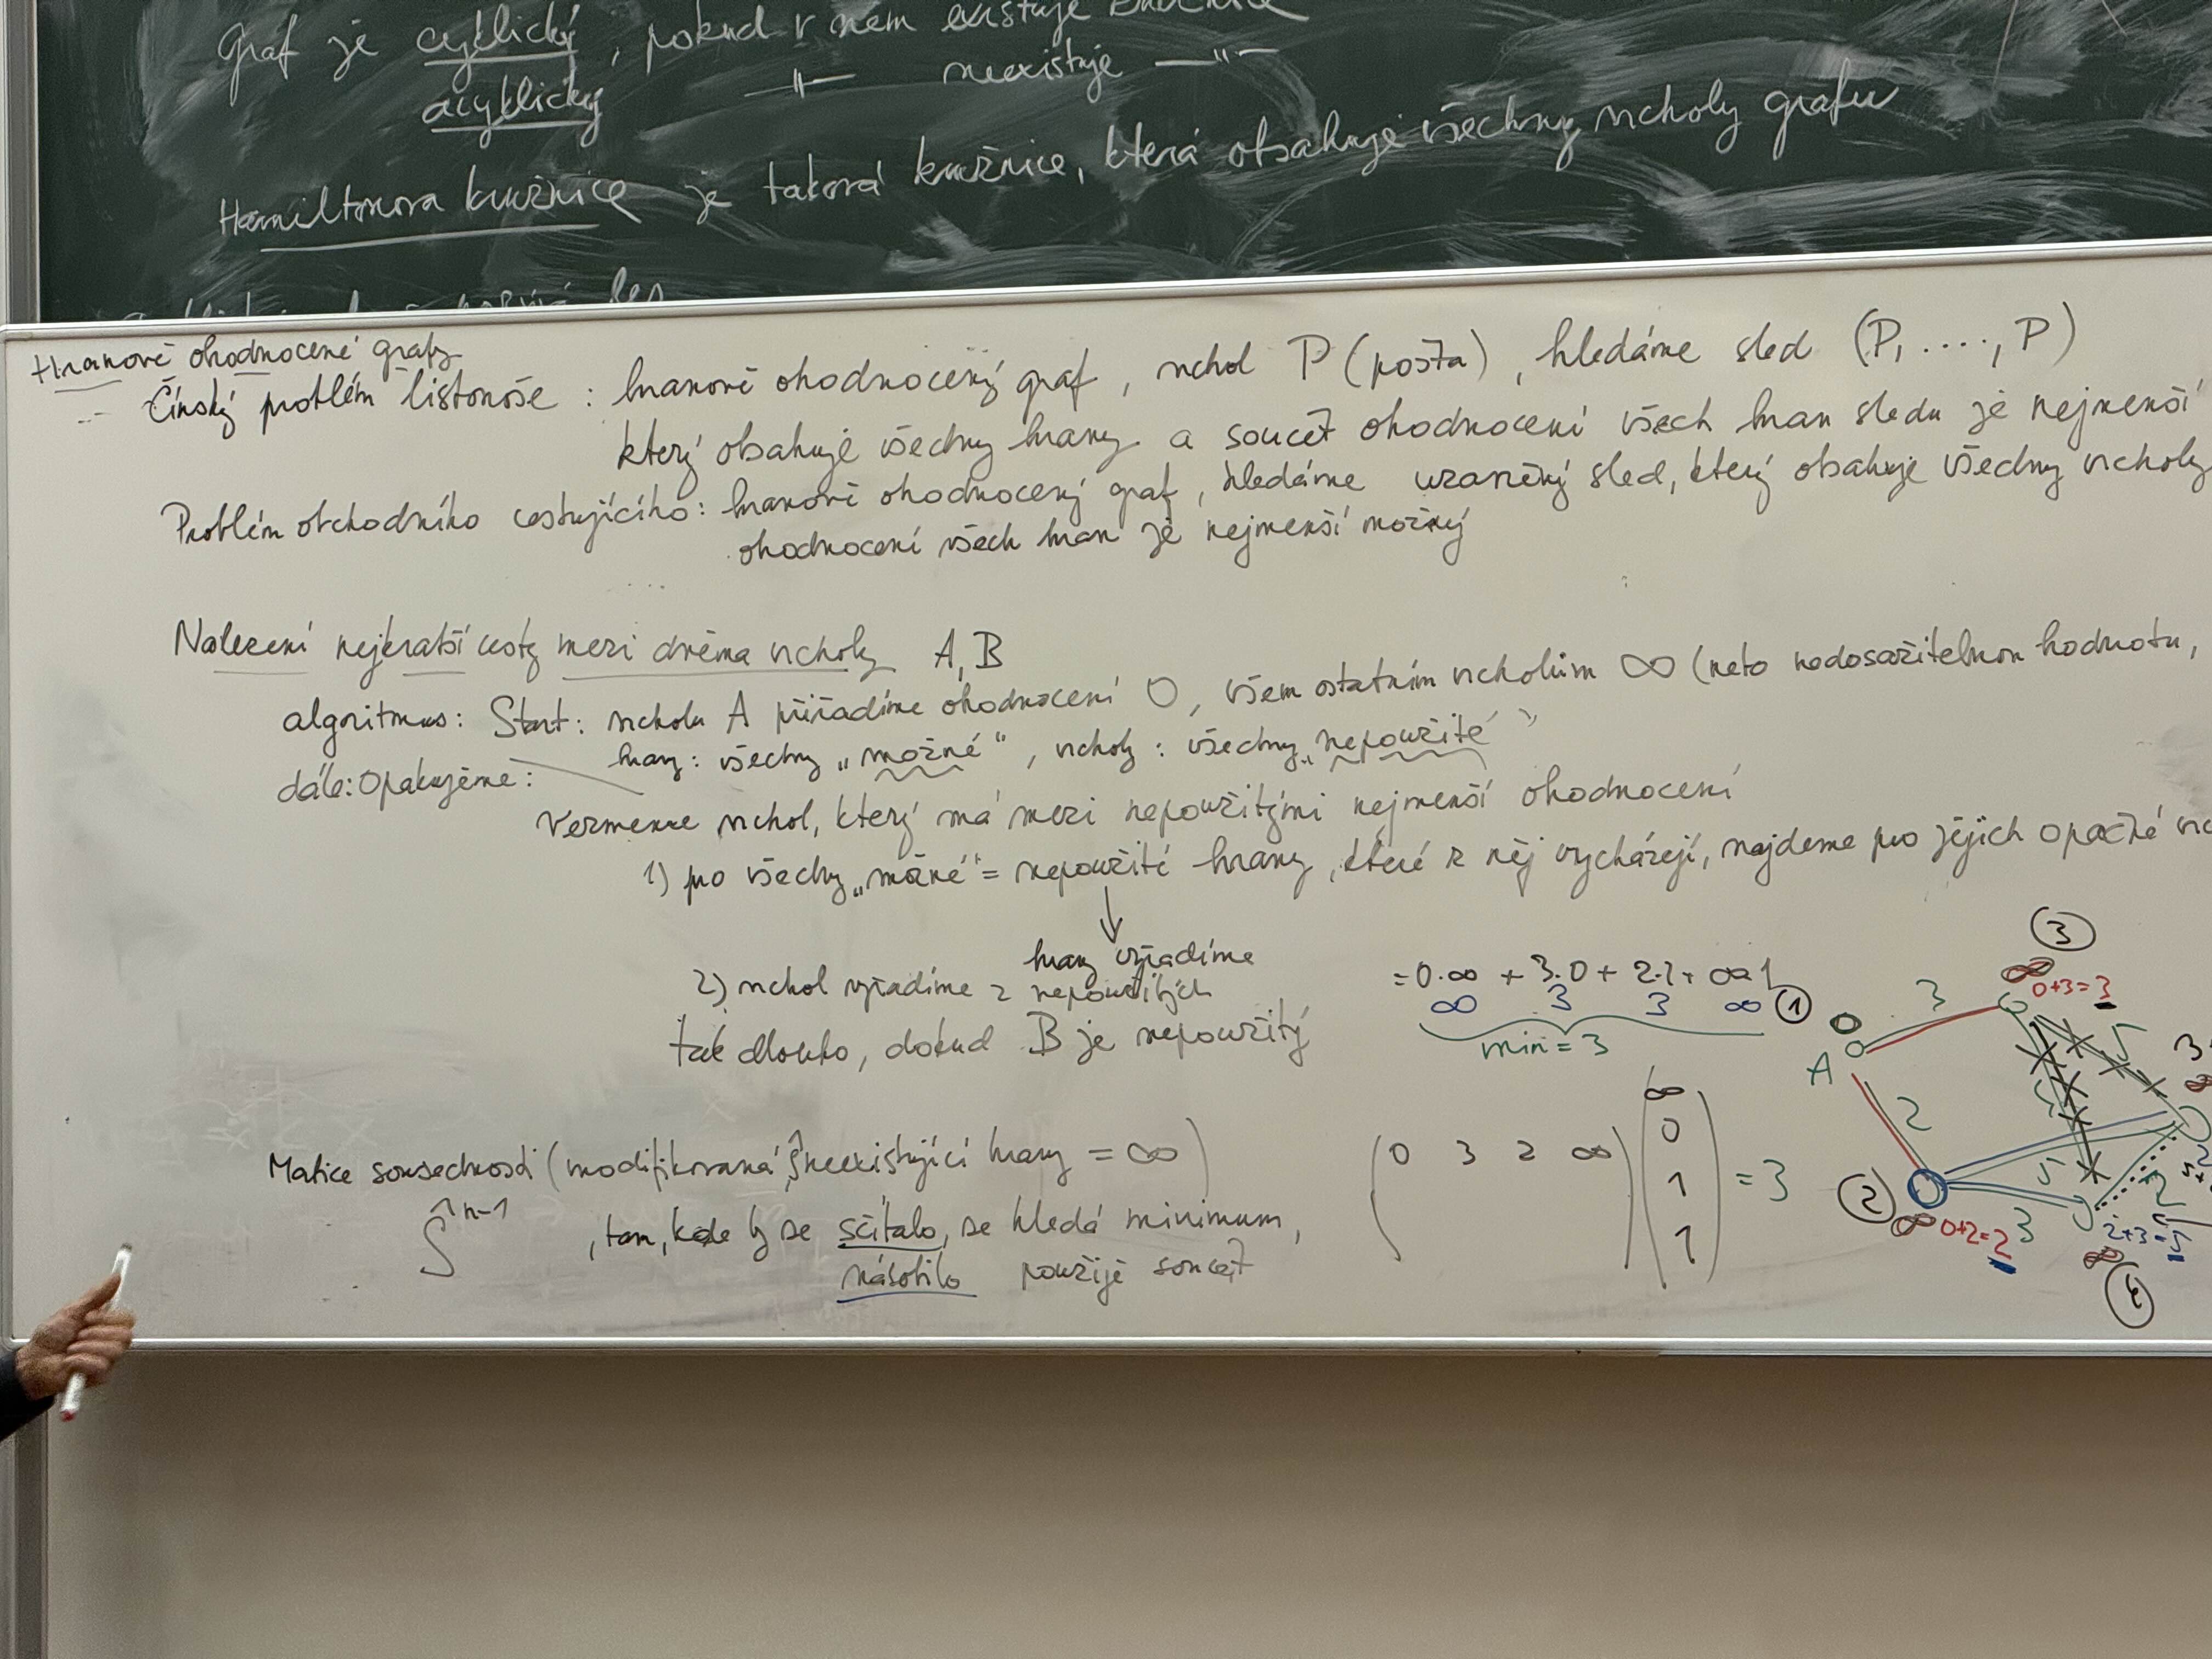 Graf je cyklický, pokud v něm existuje kružnice
acyklický —"— neexistuje —"—
Hamiltonova kružnice je taková kružnice, která obsahuje všechny vrcholy grafu
Hranově ohodnocené grafy
Čínský problém listonoše : hranově ohodnocený graf, vrchol P (pošta), hledáme sled (P, ...., P)
který obsahuje všechny hrany a součet ohodnocení všech hran sledu je nejmenší
Problém obchodního cestujícího: hranově ohodnocený graf, hledáme uzavřený sled, který obsahuje všechny vrcholy
ohodnocení všech hran je nejmenší možný
Nalezení nejkratší cesty mezi dvěma vrcholy A, B
algoritmus: Start: vrcholu A přiřadíme ohodnocení 0, všem ostatním vrcholům ∞ (nebo nedosažitelnou hodnotu,
hrany: všechny „možné“, vrcholy: všechny „nepoužité“
dále: Opakujeme:
Vezmeme vrchol, který má mezi nepoužitými nejmenší ohodnocení
1) pro všechny „možné“ = nepoužité hrany, které z něj vycházejí, najdeme pro jejich opačné
↓
hrany vyřadíme
2) vrchol vyřadíme z nepoužitých
tak dlouho, dokud B je nepoužitý
=0·∞ + 3·0 + 2·1 + ∞·1
∞ 3 3 ∞
min = 3
Matice sousednosti (modifikovaná Ŝ neexistující hrany = ∞)
Ŝⁿ⁻¹ , tam, kde by se sčítalo, se hledá minimum,
násobilo použije součet
(0 3 2 ∞) (∞ 0 1 1) = 3
① 0 A
③ ∞ 0+3=3
3
5
2
② ∞ 0+2=2
5
3
2
∞ 2+3=5
④